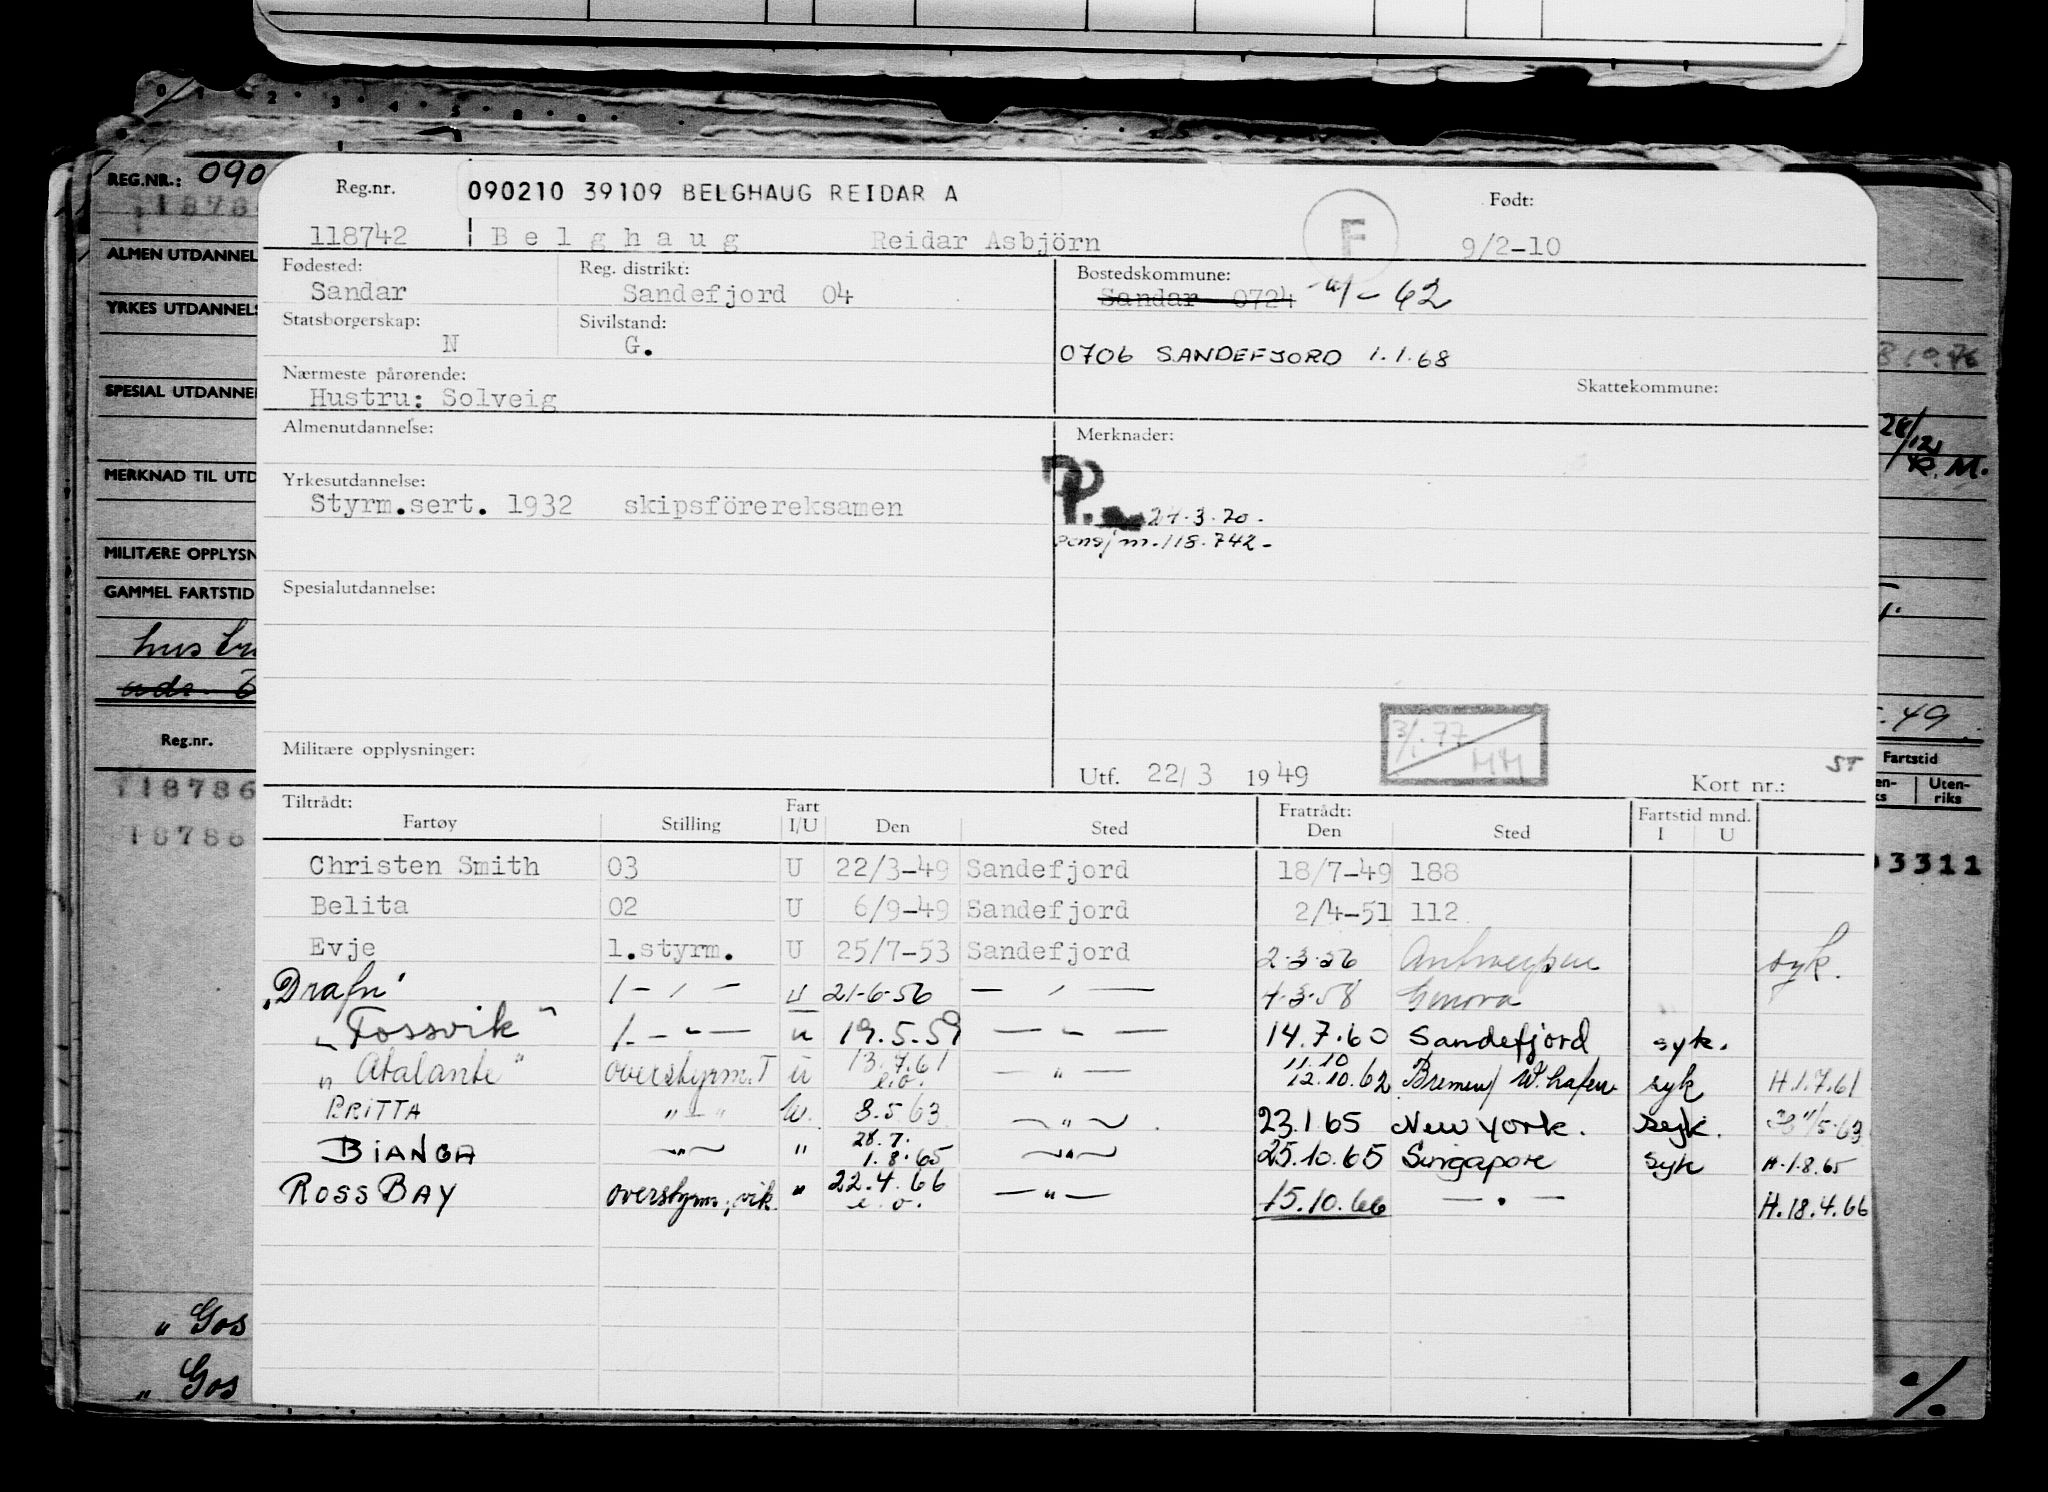 0 1 2 3 4 5 6
REG.NR.: 090
11878
ALMEN UTDANNEL
YRKES UTDANNELS
SPESIAL UTDANNEL
MERKNAD TIL UTD
MILITÆRE OPPLYSN
GAMMEL FARTSTID
hustru
Reg.nr.
118786
118786
„ Gos
„ Gos
Reg.nr. 090210 39109 BELGHAUG REIDAR A Født:
118742 Belghaug Reidar Asbjörn F 9/2-10
Fødested: Reg. distrikt: Bostedskommune:
Sandar Sandefjord 04 Sandar 0724 - 62
Statsborgerskap: Sivilstand:
N G. 0706 SANDEFJORD 1.1.68
Nærmeste pårørende: Skattekommune:
Hustru: Solveig
Almenutdannelse: Merknader:
Yrkesutdannelse:
Styrm.sert. 1932 skipsförereksamen P. 24.3.70.
pensj nr. 118.742-
Spesialutdannelse:
3/1.77 MM
Militære opplysninger: Utf. 22/3 1949 Kort nr.: ST
Tiltrådt: Fart Fratrådt: Fartstid mnd.
Fartøy Stilling I/U Den Sted Den Sted I U
Christen Smith 03 U 22/3-49 Sandefjord 18/7-49 188
Belita 02 U 6/9-49 Sandefjord 2/4-51 112
Evje 1.styrm. U 25/7-53 Sandefjord 2.3.56 Antwerpen syk.
"Drafn" 1 - " - U 21-6-56 — " — 4.3.58 Genova
"Fossvik" 1. - " — u 19.5.59 — " — 14.7.60 Sandefjord syk.
"Atalante" overstyrm. T u 13.7.61 e.o. — " — 11.10 12.10.62 Bremen/W.hafen syk H.1.7.61
BRITTA " — " U. 8.5.63 — " — 23.1.65 New York. syk. /5.63
BIANCA — " — " 28.7. 1.8.65 — " — 25.10.65 Singapore syk H.1.8.65
ROSS BAY overstyrm, vik. " 22.4.66 e.o. — " — 15.10.66 — " — H.18.4.66
28/12
R.M.
.49
Fartstid
en-ks Uten-riks
03311
%